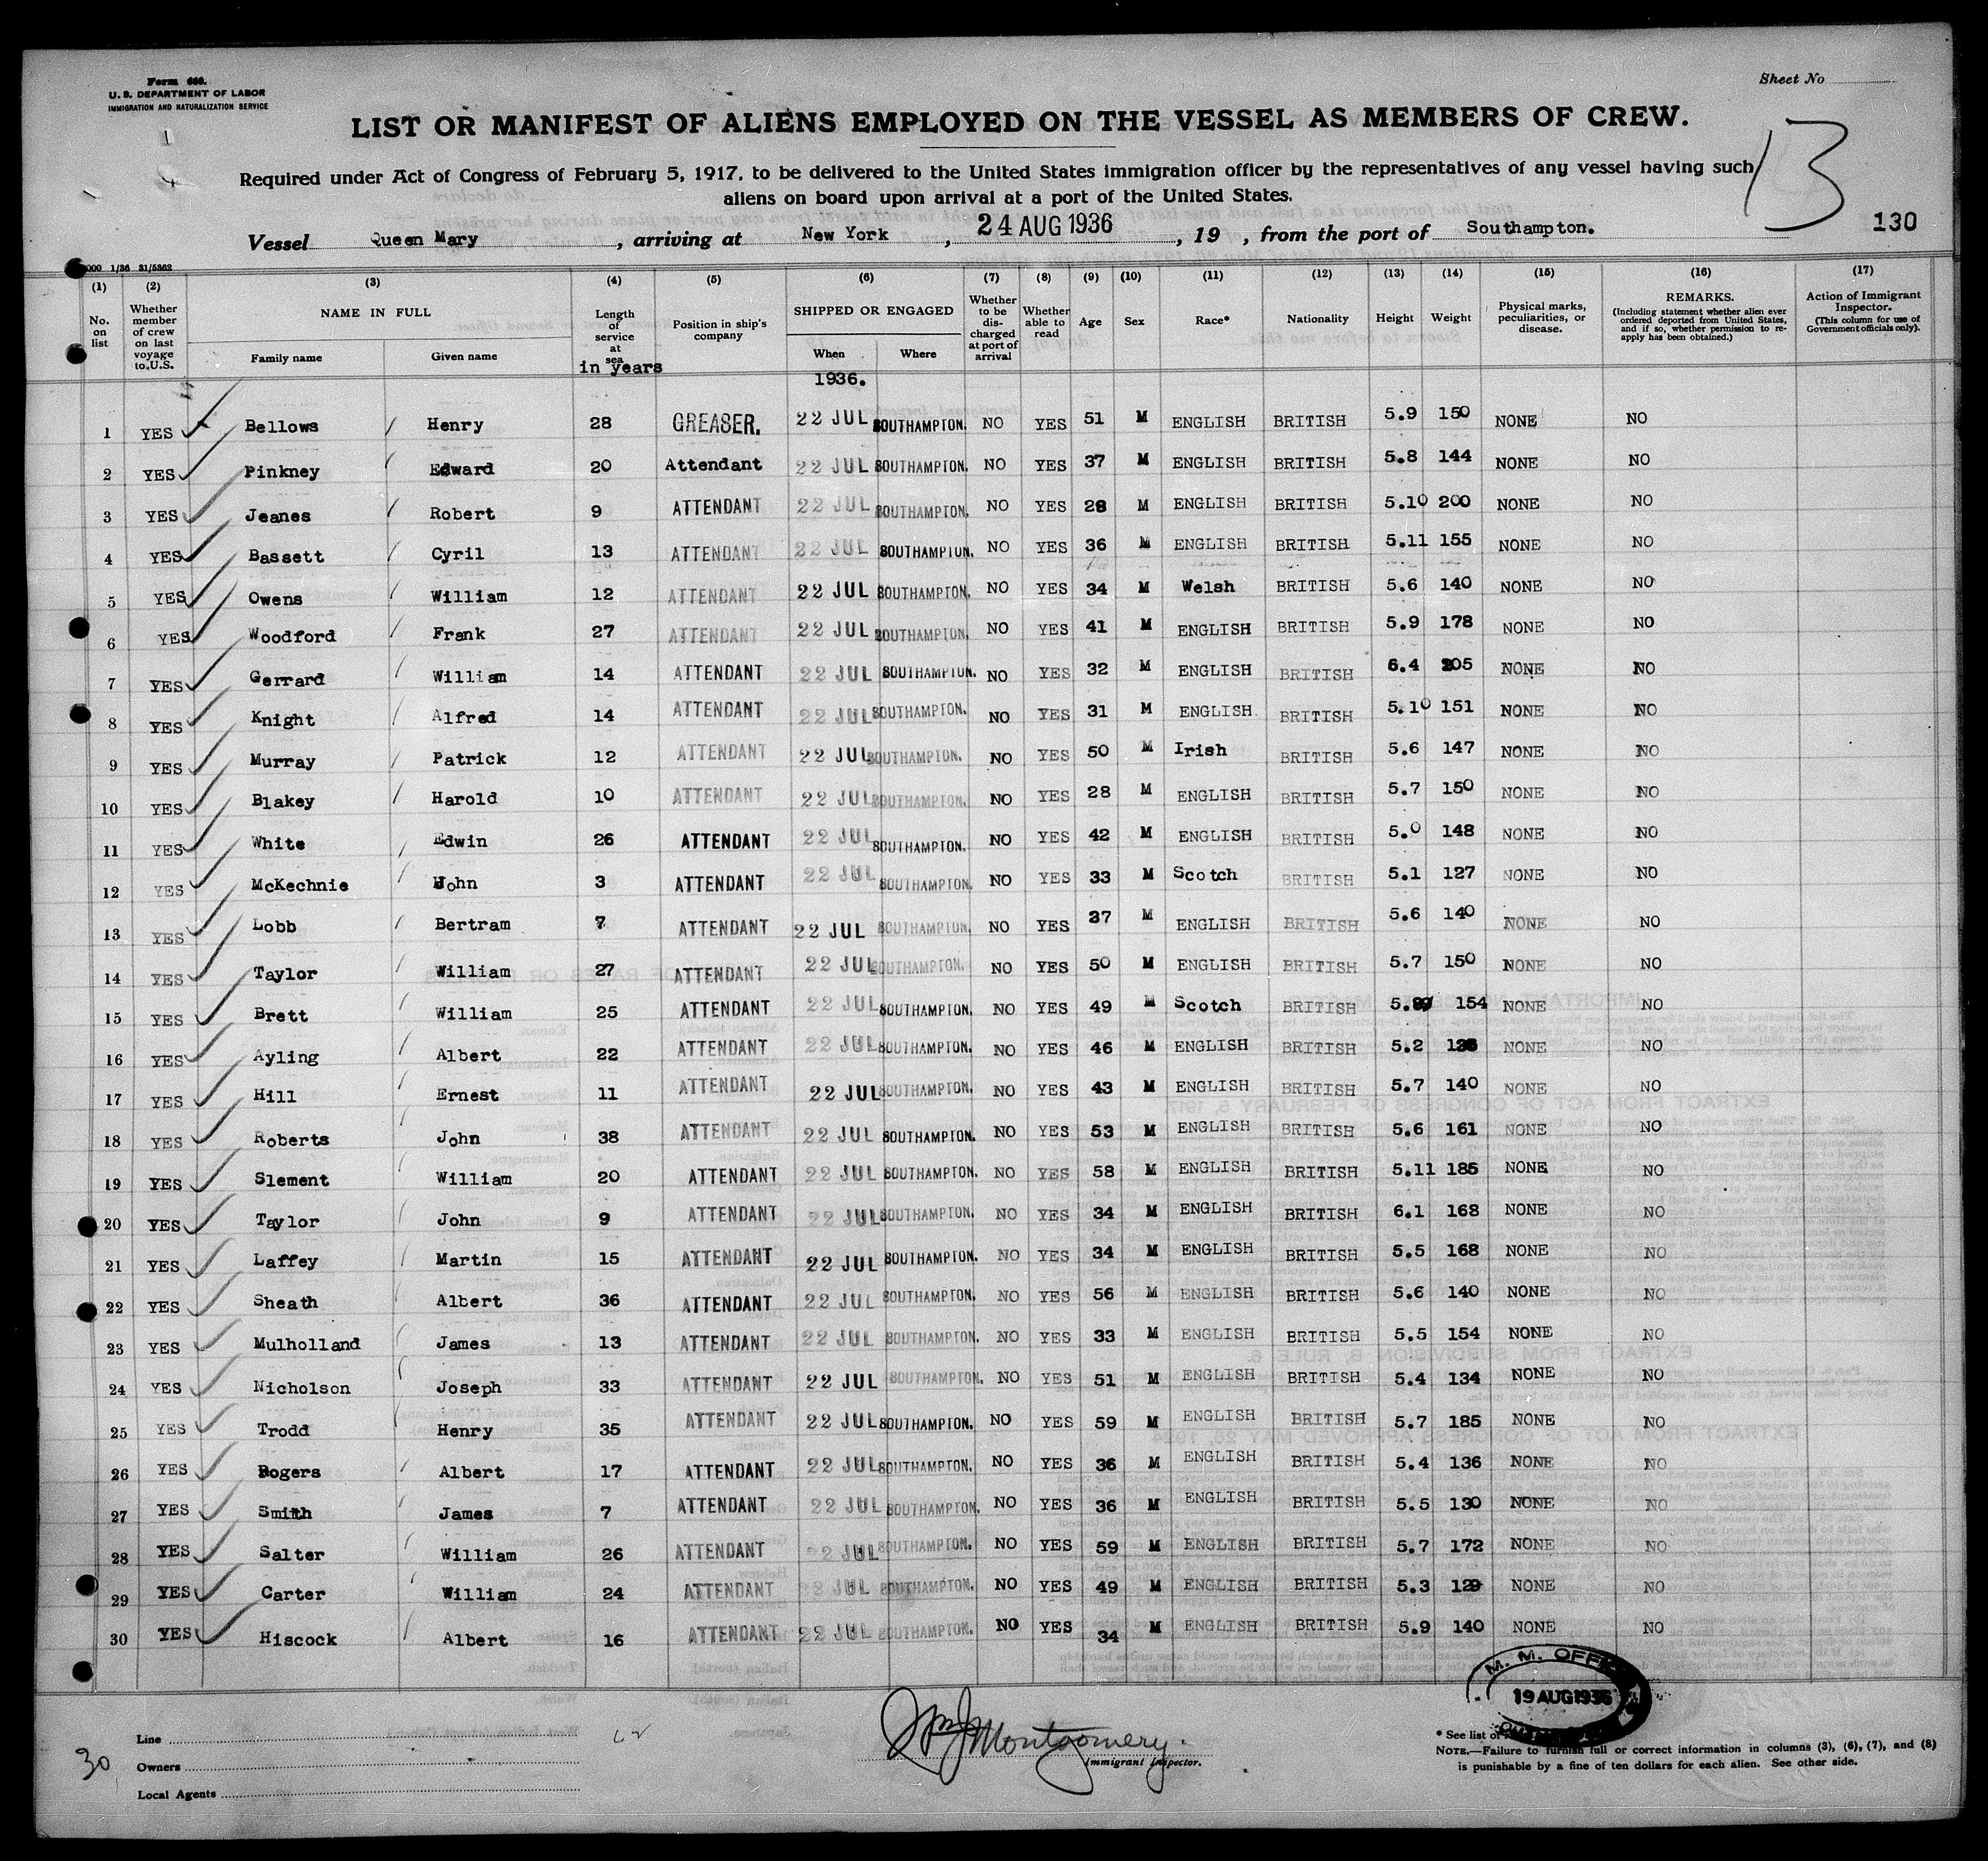 Form 680.
U. S. DEPARTMENT OF LABOR
IMMIGRATION AND NATURALIZATION SERVICE
Sheet No
LIST OR MANIFEST OF ALIENS EMPLOYED ON THE VESSEL AS MEMBERS OF CREW.
13
Required under Act of Congress of February 5, 1917, to be delivered to the United States immigration officer by the representatives of any vessel having such
aliens on board upon arrival at a port of the United States.
Vessel Queen Mary, arriving at New York, 24 AUG 1936, 19 , from the port of Southampton. 130
000 1/36 31/5862
(1) (2) (3) (4) (5) (6) (7) (8) (9) (10) (11) (12) (13) (14) (15) (16) (17)
No. on list
Whether member of crew on last voyage to U.S.
NAME IN FULL
Family name Given name
Length of service at sea in years
Position in ship's company
SHIPPED OR ENGAGED
When Where
1936.
Whether to be discharged at port of arrival
Whether able to read
Age
Sex
Race*
Nationality
Height
Weight
Physical marks, peculiarities, or disease.
REMARKS. (Including statement whether alien ever ordered deported from United States, and if so, whether permission to re-apply has been obtained.)
Action of Immigrant Inspector. (This column for use of Government officials only).
1 YES Bellows Henry 28 GREASER. 22 JUL SOUTHAMPTON. NO YES 51 M ENGLISH BRITISH 5.9 150 NONE NO
2 YES Pinkney Edward 20 Attendant 22 JUL SOUTHAMPTON. NO YES 37 M ENGLISH BRITISH 5.8 144 NONE NO
3 YES Jeanes Robert 9 ATTENDANT 22 JUL SOUTHAMPTON. NO YES 28 M ENGLISH BRITISH 5.10 200 NONE NO
4 YES Bassett Cyril 13 ATTENDANT 22 JUL SOUTHAMPTON. NO YES 36 M ENGLISH BRITISH 5.11 155 NONE NO
5 YES Owens William 12 ATTENDANT 22 JUL SOUTHAMPTON. NO YES 34 M Welsh BRITISH 5.6 140 NONE NO
6 YES Woodford Frank 27 ATTENDANT 22 JUL SOUTHAMPTON. NO YES 41 M ENGLISH BRITISH 5.9 178 NONE NO
7 YES Gerrard William 14 ATTENDANT 22 JUL SOUTHAMPTON. NO YES 32 M ENGLISH BRITISH 6.4 205 NONE NO
8 YES Knight Alfred 14 ATTENDANT 22 JUL SOUTHAMPTON. NO YES 31 M ENGLISH BRITISH 5.10 151 NONE NO
9 YES Murray Patrick 12 ATTENDANT 22 JUL SOUTHAMPTON. NO YES 50 M Irish BRITISH 5.6 147 NONE NO
10 YES Blakey Harold 10 ATTENDANT 22 JUL SOUTHAMPTON. NO YES 28 M ENGLISH BRITISH 5.7 150 NONE NO
11 YES White Edwin 26 ATTENDANT 22 JUL SOUTHAMPTON. NO YES 42 M ENGLISH BRITISH 5.0 148 NONE NO
12 YES McKechnie John 3 ATTENDANT 22 JUL SOUTHAMPTON. NO YES 33 M Scotch BRITISH 5.1 127 NONE NO
13 YES Lobb Bertram 7 ATTENDANT 22 JUL SOUTHAMPTON. NO YES 37 M ENGLISH BRITISH 5.6 140 NONE NO
14 YES Taylor William 27 ATTENDANT 22 JUL SOUTHAMPTON. NO YES 50 M ENGLISH BRITISH 5.7 150 NONE NO
15 YES Brett William 25 ATTENDANT 22 JUL SOUTHAMPTON. NO YES 49 M Scotch BRITISH 154 NONE NO
16 YES Ayling Albert 22 ATTENDANT 22 JUL SOUTHAMPTON. NO YES 46 M ENGLISH BRITISH 5.2 NONE NO
17 YES Hill Ernest 11 ATTENDANT 22 JUL SOUTHAMPTON. NO YES 43 M ENGLISH BRITISH 5.7 140 NONE NO
18 YES Roberts John 38 ATTENDANT 22 JUL SOUTHAMPTON. NO YES 53 M ENGLISH BRITISH 5.6 161 NONE NO
19 YES Slement William 20 ATTENDANT 22 JUL SOUTHAMPTON. NO YES 58 M ENGLISH BRITISH 5.11 185 NONE NO
20 YES Taylor John 9 ATTENDANT 22 JUL SOUTHAMPTON. NO YES 34 M ENGLISH BRITISH 6.1 168 NONE NO
21 YES Laffey Martin 15 ATTENDANT 22 JUL SOUTHAMPTON. NO YES 34 M ENGLISH BRITISH 5.5 168 NONE NO
22 YES Sheath Albert 36 ATTENDANT 22 JUL SOUTHAMPTON. NO YES 56 M ENGLISH BRITISH 5.6 140 NONE NO
23 YES Mulholland James 13 ATTENDANT 22 JUL SOUTHAMPTON. NO YES 33 M ENGLISH BRITISH 5.5 154 NONE NO
24 YES Nicholson Joseph 33 ATTENDANT 22 JUL SOUTHAMPTON. NO YES 51 M ENGLISH BRITISH 5.4 134 NONE NO
25 YES Trodd Henry 35 ATTENDANT 22 JUL SOUTHAMPTON. NO YES 59 M ENGLISH BRITISH 5.7 185 NONE NO
26 YES Rogers Albert 17 ATTENDANT 22 JUL SOUTHAMPTON. NO YES 36 M ENGLISH BRITISH 5.4 136 NONE NO
27 YES Smith James 7 ATTENDANT 22 JUL SOUTHAMPTON. NO YES 36 M ENGLISH BRITISH 5.5 130 NONE NO
28 YES Salter William 26 ATTENDANT 22 JUL SOUTHAMPTON. NO YES 59 M ENGLISH BRITISH 5.7 172 NONE NO
29 YES Carter William 24 ATTENDANT 22 JUL SOUTHAMPTON. NO YES 49 M ENGLISH BRITISH 5.3 129 NONE NO
30 YES Hiscock Albert 16 ATTENDANT 22 JUL SOUTHAMPTON. NO YES 34 M ENGLISH BRITISH 5.9 140 NONE NO
M. M. OFFICE
19 AUG 1936
Line
30 Owners
Local Agents
Wm J Montgomery
Immigrant Inspector.
* See list of
NOTE.—Failure to furnish full or correct information in columns (3), (6), (7), and (8)
is punishable by a fine of ten dollars for each alien. See other side.